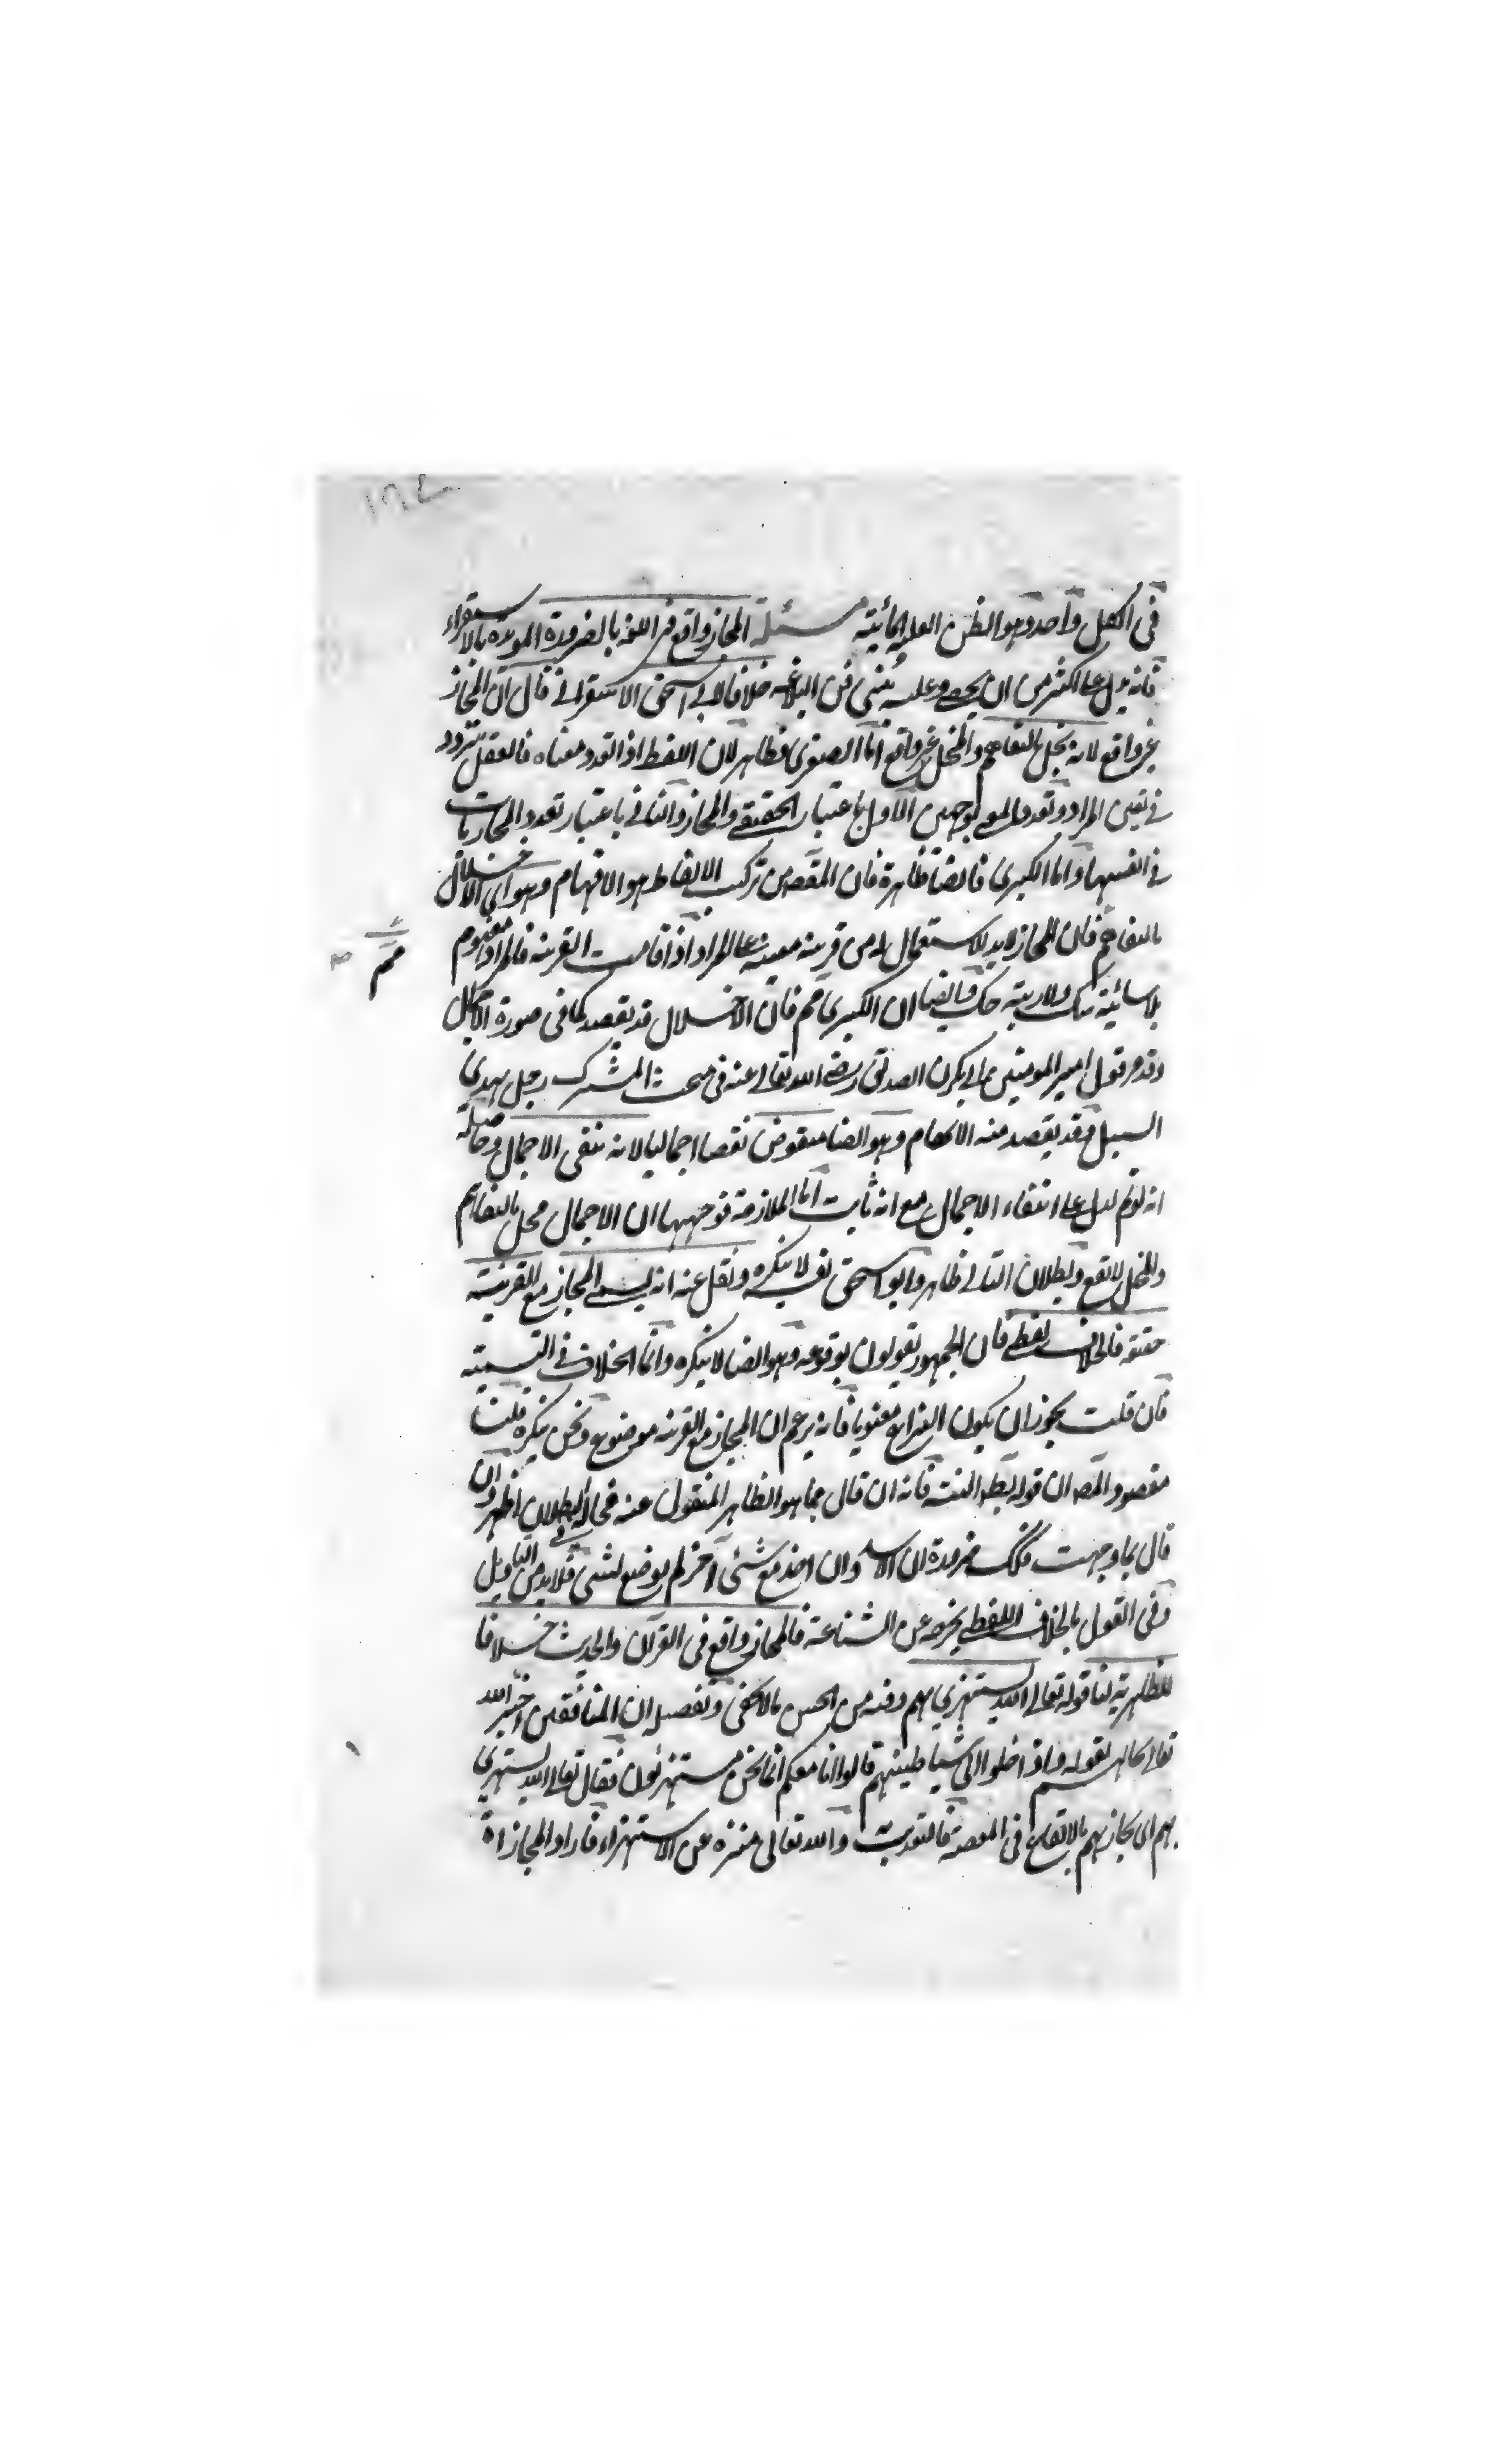 في الكل واحد وهو الظن والعلاقة مسئلة المجاز واقع في اللغة بالضرورة المؤيدة بالاستقراء
فانه يدل على اكثر من ان يحصى وعليه يبتنى فن البلاغة خلافا لابى اسحق الاسفرائنى قال ان المجاز
غير واقع لانه يخل بالتفاهم والمخل غير واقع اما الصغرى فظاهر لان اللفظ اذا تعدد معناه فالعقل يتردد
في تعين المراد وتعدد المعنى لوجهين الاول باعتبار الحقيقى والمجاز والثانى باعتبار تعدد المجازيات
في انفسها واما الكبرى فايضا ظاهرة فان المقصد من تركيب الالفاظ هو الافهام وهو اى الاخلال
بالتفاهم فان المجاز لابد لاستعماله من قرينة معينة على المراد اذا قامت القرينة فالمراد مفهوم
بلا شائبة شك ولا ريبة وايضا ان الكبرى مم فان الاخلال قد يقصد كما في صورة الاجمال
وقد مر قول امير المومنين ابى بكر ن الصديق رضى الله تعالى عنه في مبحث المشترك رجل يهدى
السبيل وقد يقصد منه الابهام وهو ايضا منقوض نقضا اجماليا لانه ينفى الاجمال وحاصله
انه لو تم لدل على انتفاء الاجمال مع انه ثابت اما الملازمة فوجهها ان الاجمال مخل بالتفاهم
والمخل لا يقع وبطلان التالى ظاهر وابو اسحق نفسه لا ينكره ونقل عنه انه يسمى المجاز مع القرينة
حقيقة فالخلاف لفظى فان الجمهور يقولون بوقوعه وهو ايضا لا ينكره وانما الخلاف في التسمية
فان قلت يجوز ان يكون النزاع معنويا فانه يزعم ان المجاز مع القرينة موضوع ونحن ننكره قلت
مقصود المص ان قوله بطـ البتة فانه ان قال بما هو الظاهر المنقول عنه فالبطلان اظهر وان
قال بما وجهت فكك ضرورة ان الاسد وان اخذ مع شئ آخر لم يوضع لشئ فلابد من التاويل
وفى القول بالخلاف اللفظى يخرجه عن الشناعة فالمجاز واقع في القرآن والحديث خلافا
للظاهرية لنا قوله تعالى الله يستهزئ بهم وفيه من الحسن ما لا يخفى وتفصيله ان المنافقين اخبر الله
تعالى بحالهم بقوله واذا خلوا الى شياطينهم قالوا انا معكم انما نحن مستهزئون فقال تعالى الله يستهزئ
بهم اى يجازيهم بالايقاع في المعصية فالتعذيب والله تعالى منزه عن الاستهزاء فاراد المجازاة
مم